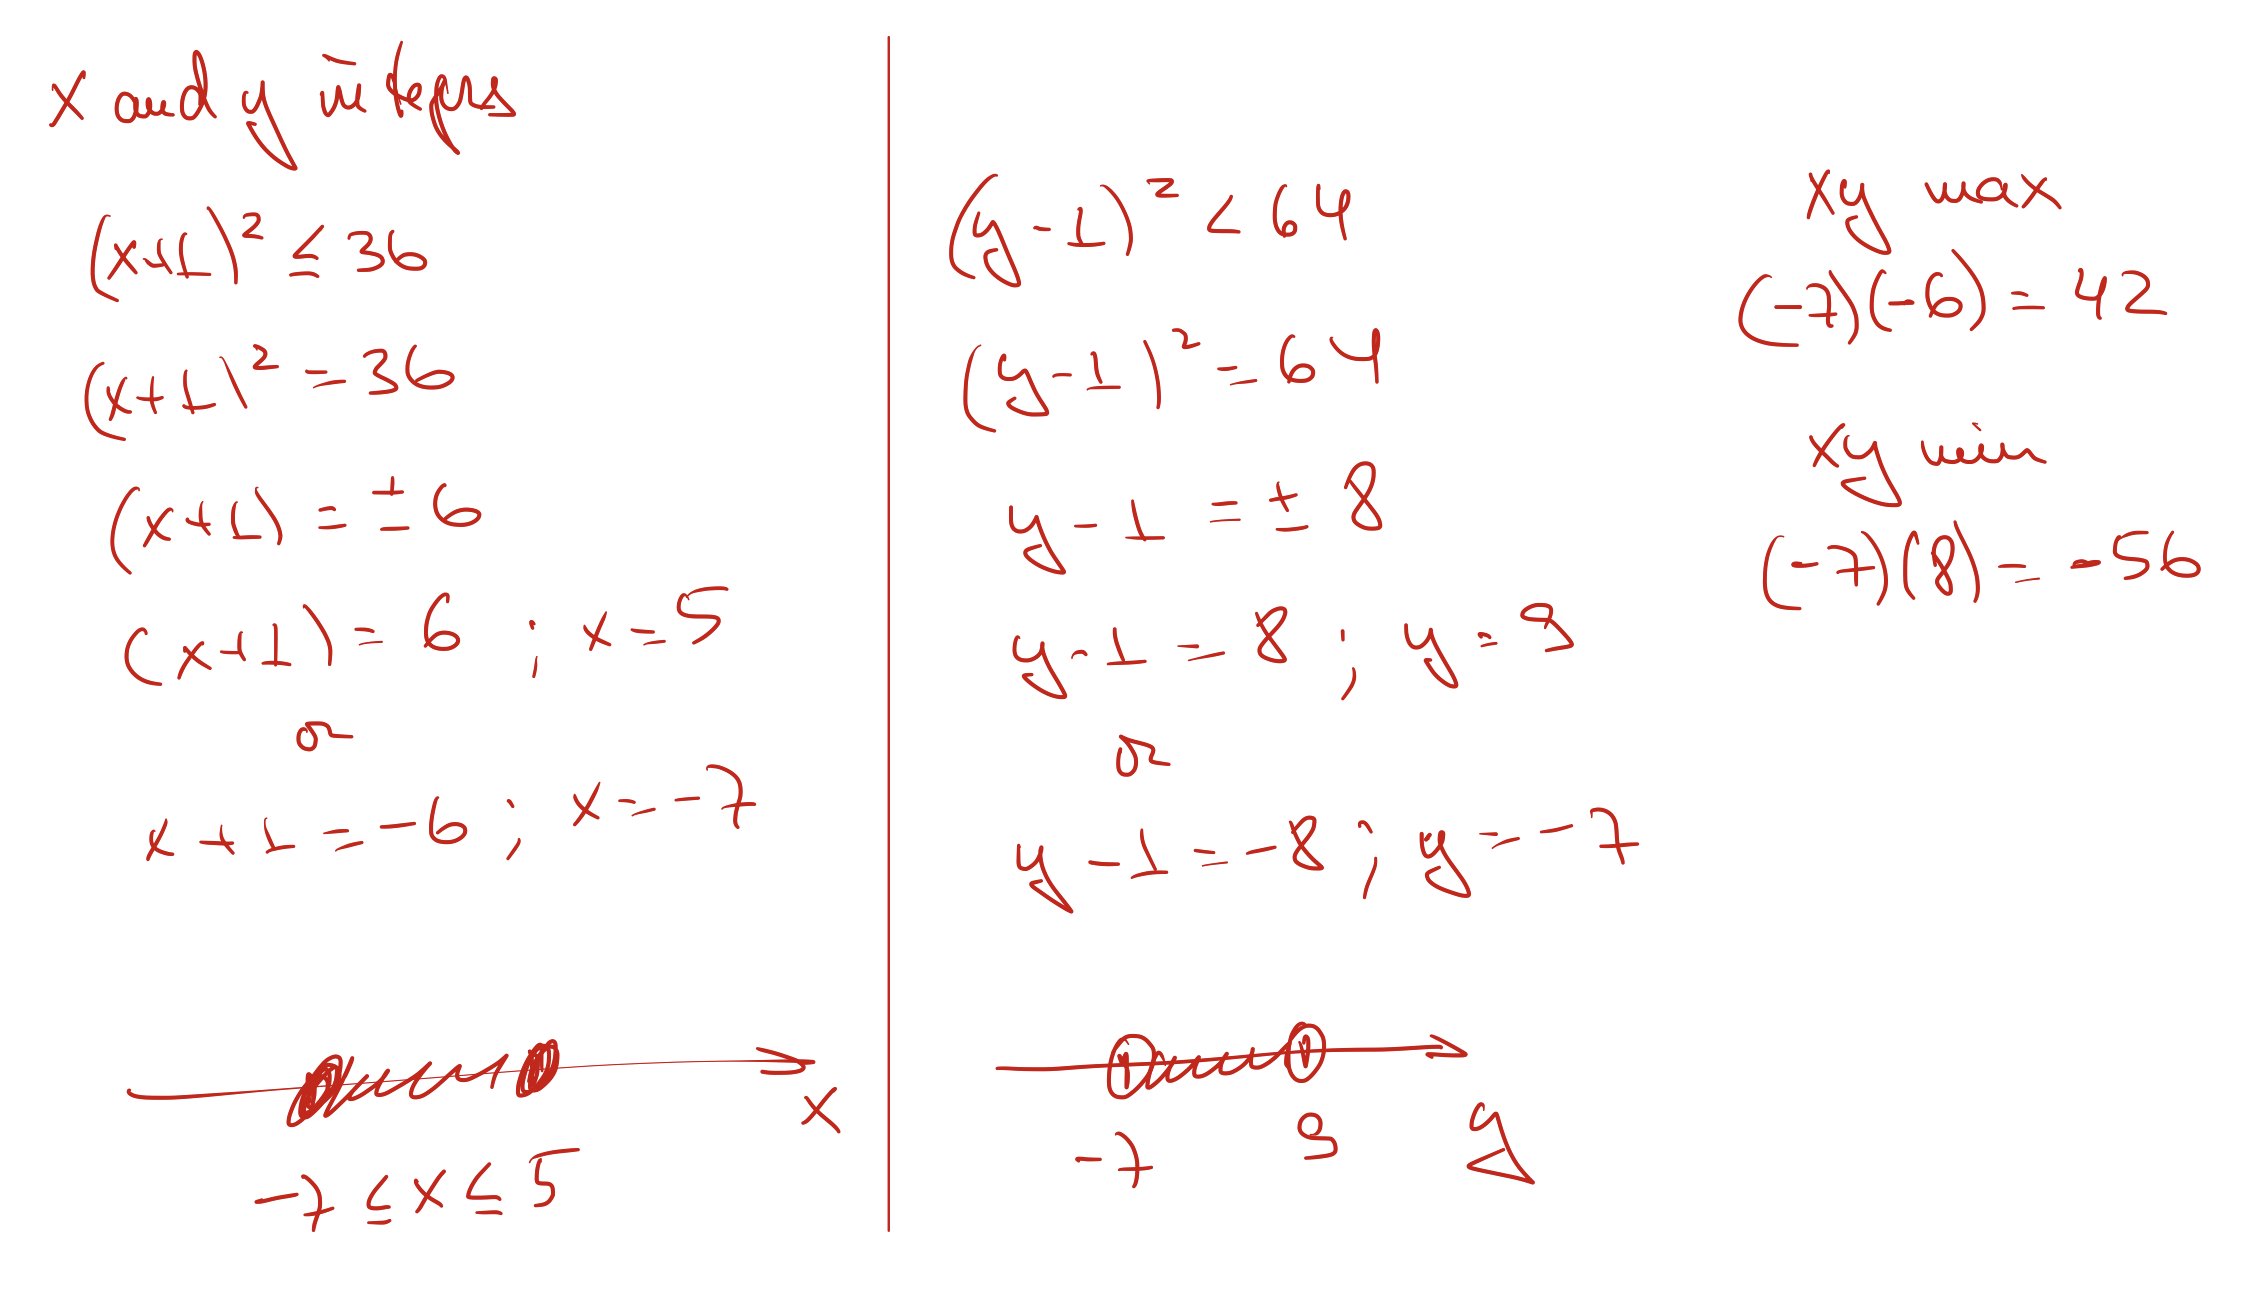 x and y integs
(x+1)² ≤ 36
(x+1)² = 36
(x+1) = ± 6
(x+1) = 6 ; x = 5
or
x + 1 = -6 ; x = -7
x
-7 ≤ x ≤ 5
(y-1)² < 64
(y-1)² = 64
y - 1 = ± 8
y - 1 = 8 ; y = 9
or
y - 1 = -8 ; y = -7
-7 9 y
xy max
(-7)(-6) = 42
xy min
(-7)(8) = -56